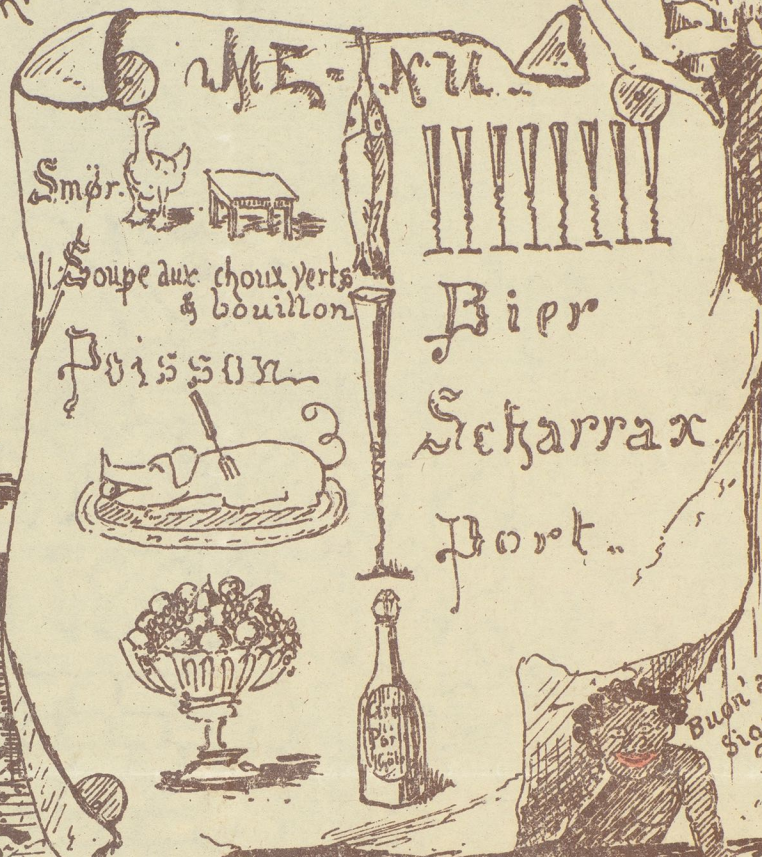 ME-NU.
Smør.
Soupe aux choux verts
& bouillon
Poisson
Bier
Scharrax.
Port.
Buon'